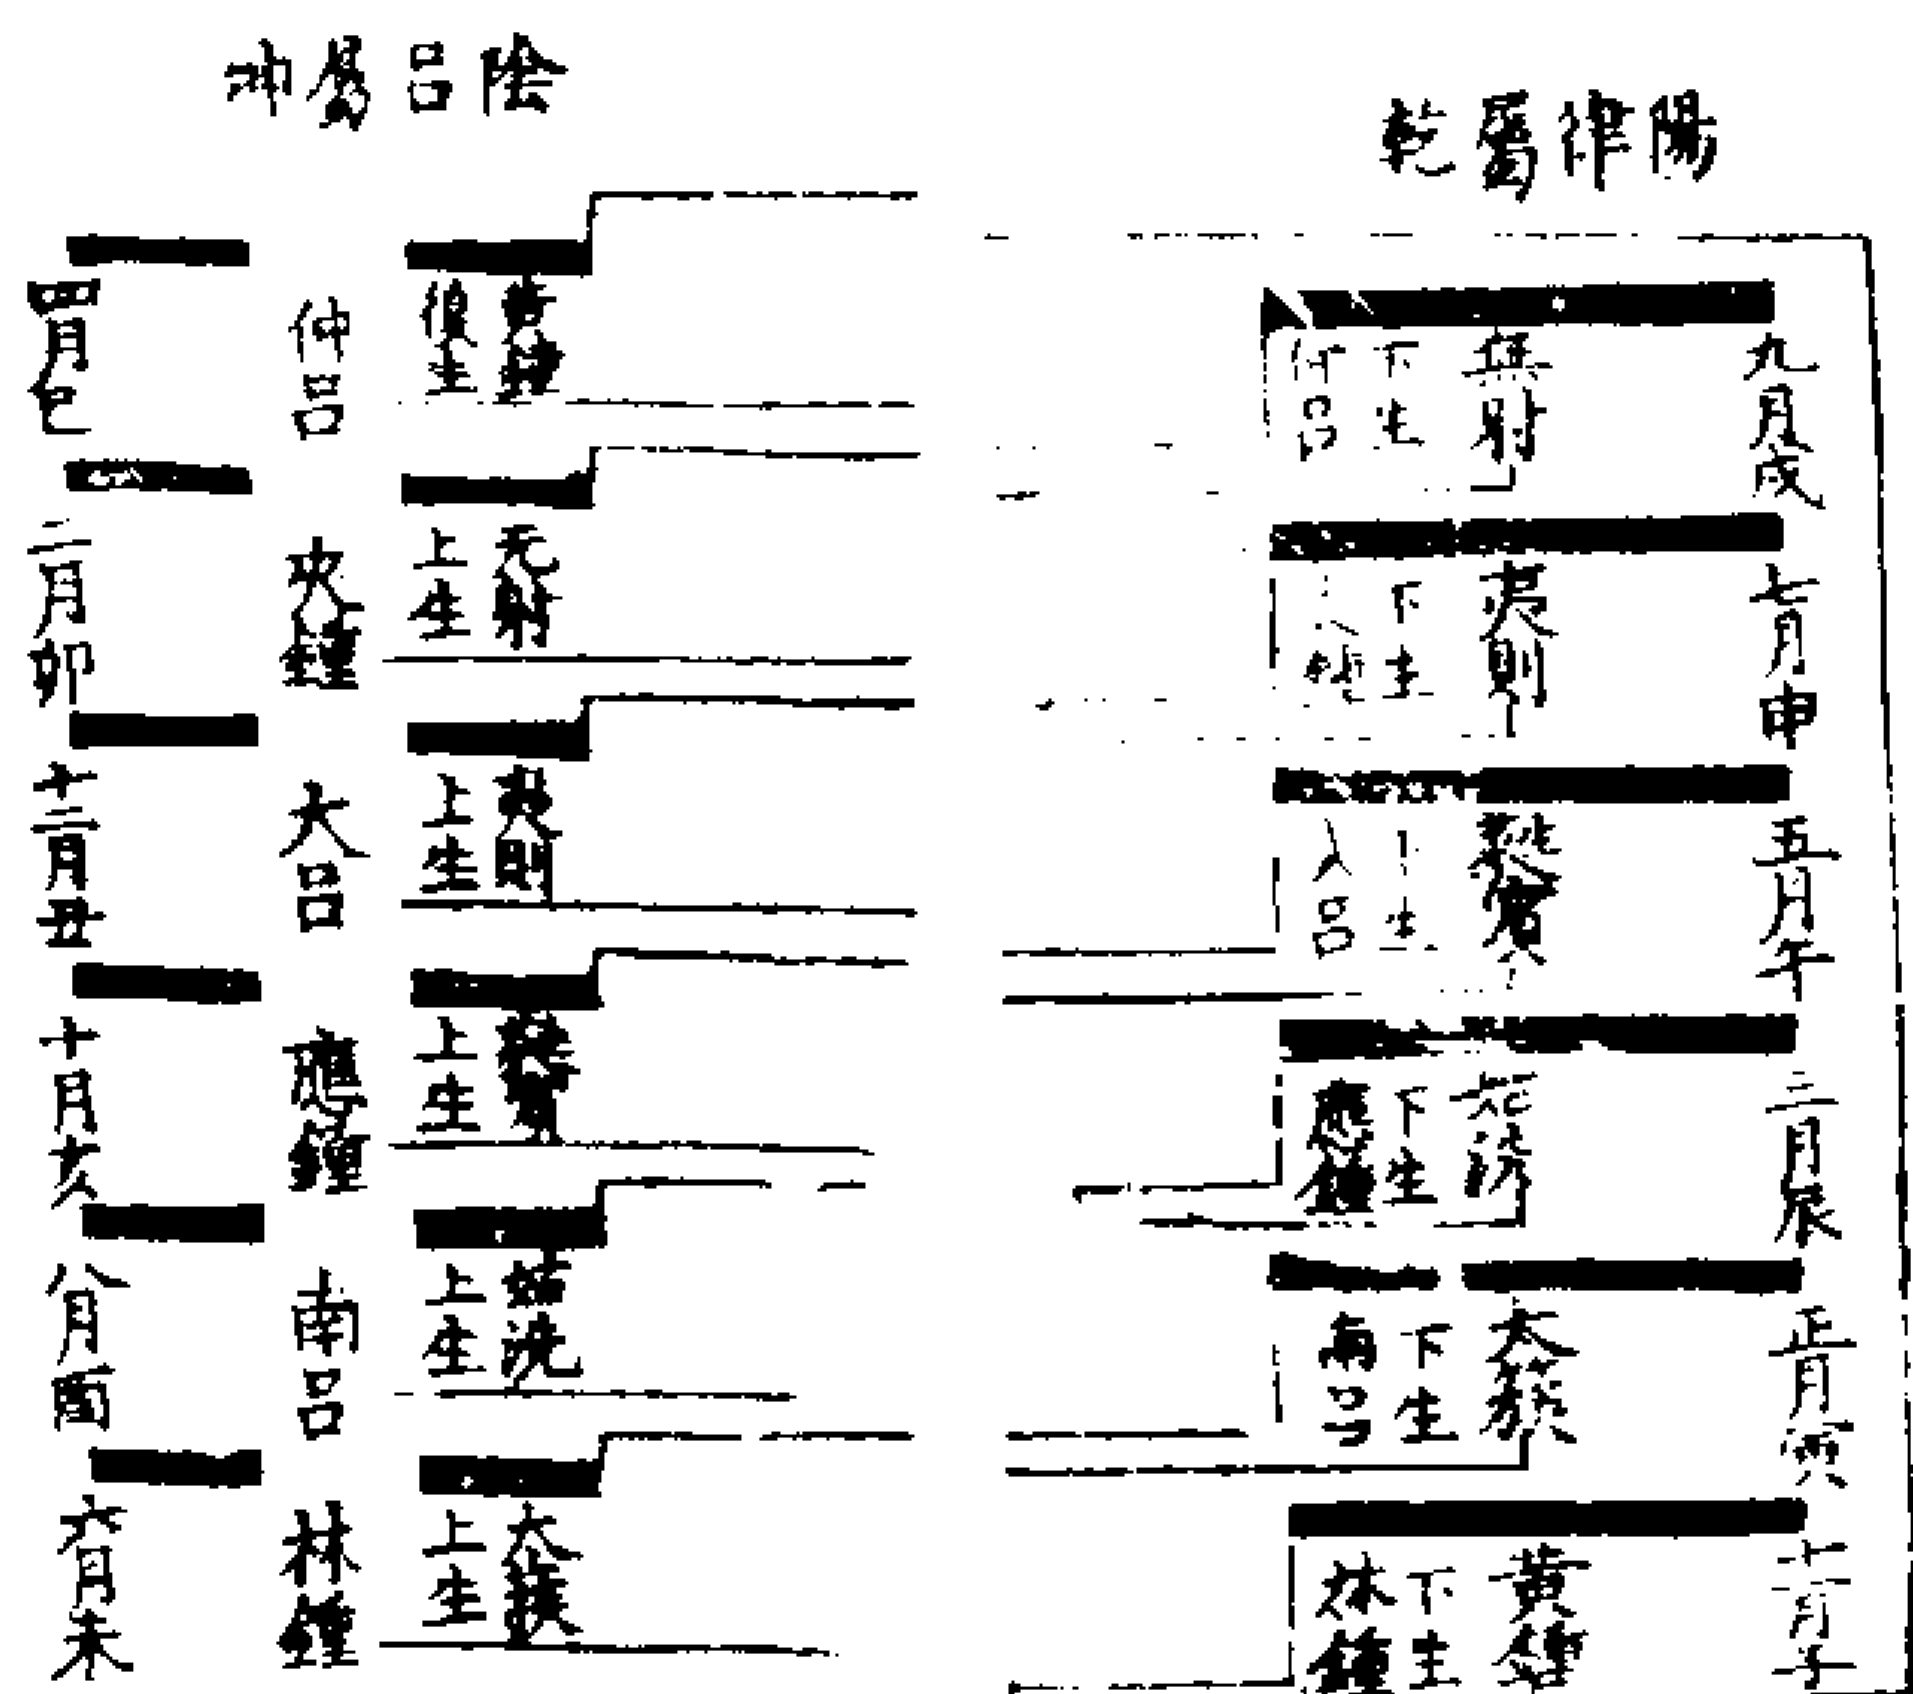 陽律屬乾
九月戌
無射
下生
仲呂
七月申
夷則
下生
五月午
蕤賓
下生
大呂
三月辰
姑洗
下生
應鍾
正月寅
太簇
下生
南呂
十一月子
黃鍾
下生
林鍾
陰呂屬坤
黃鍾
復生
仲呂
四月巳
无射
上生
夾鍾
二月卯
夷則
上生
大呂
十二月丑
蕤賓
上生
應鍾
十月亥
姑洗
上生
南呂
八月酉
太簇
上生
林鍾
六月未